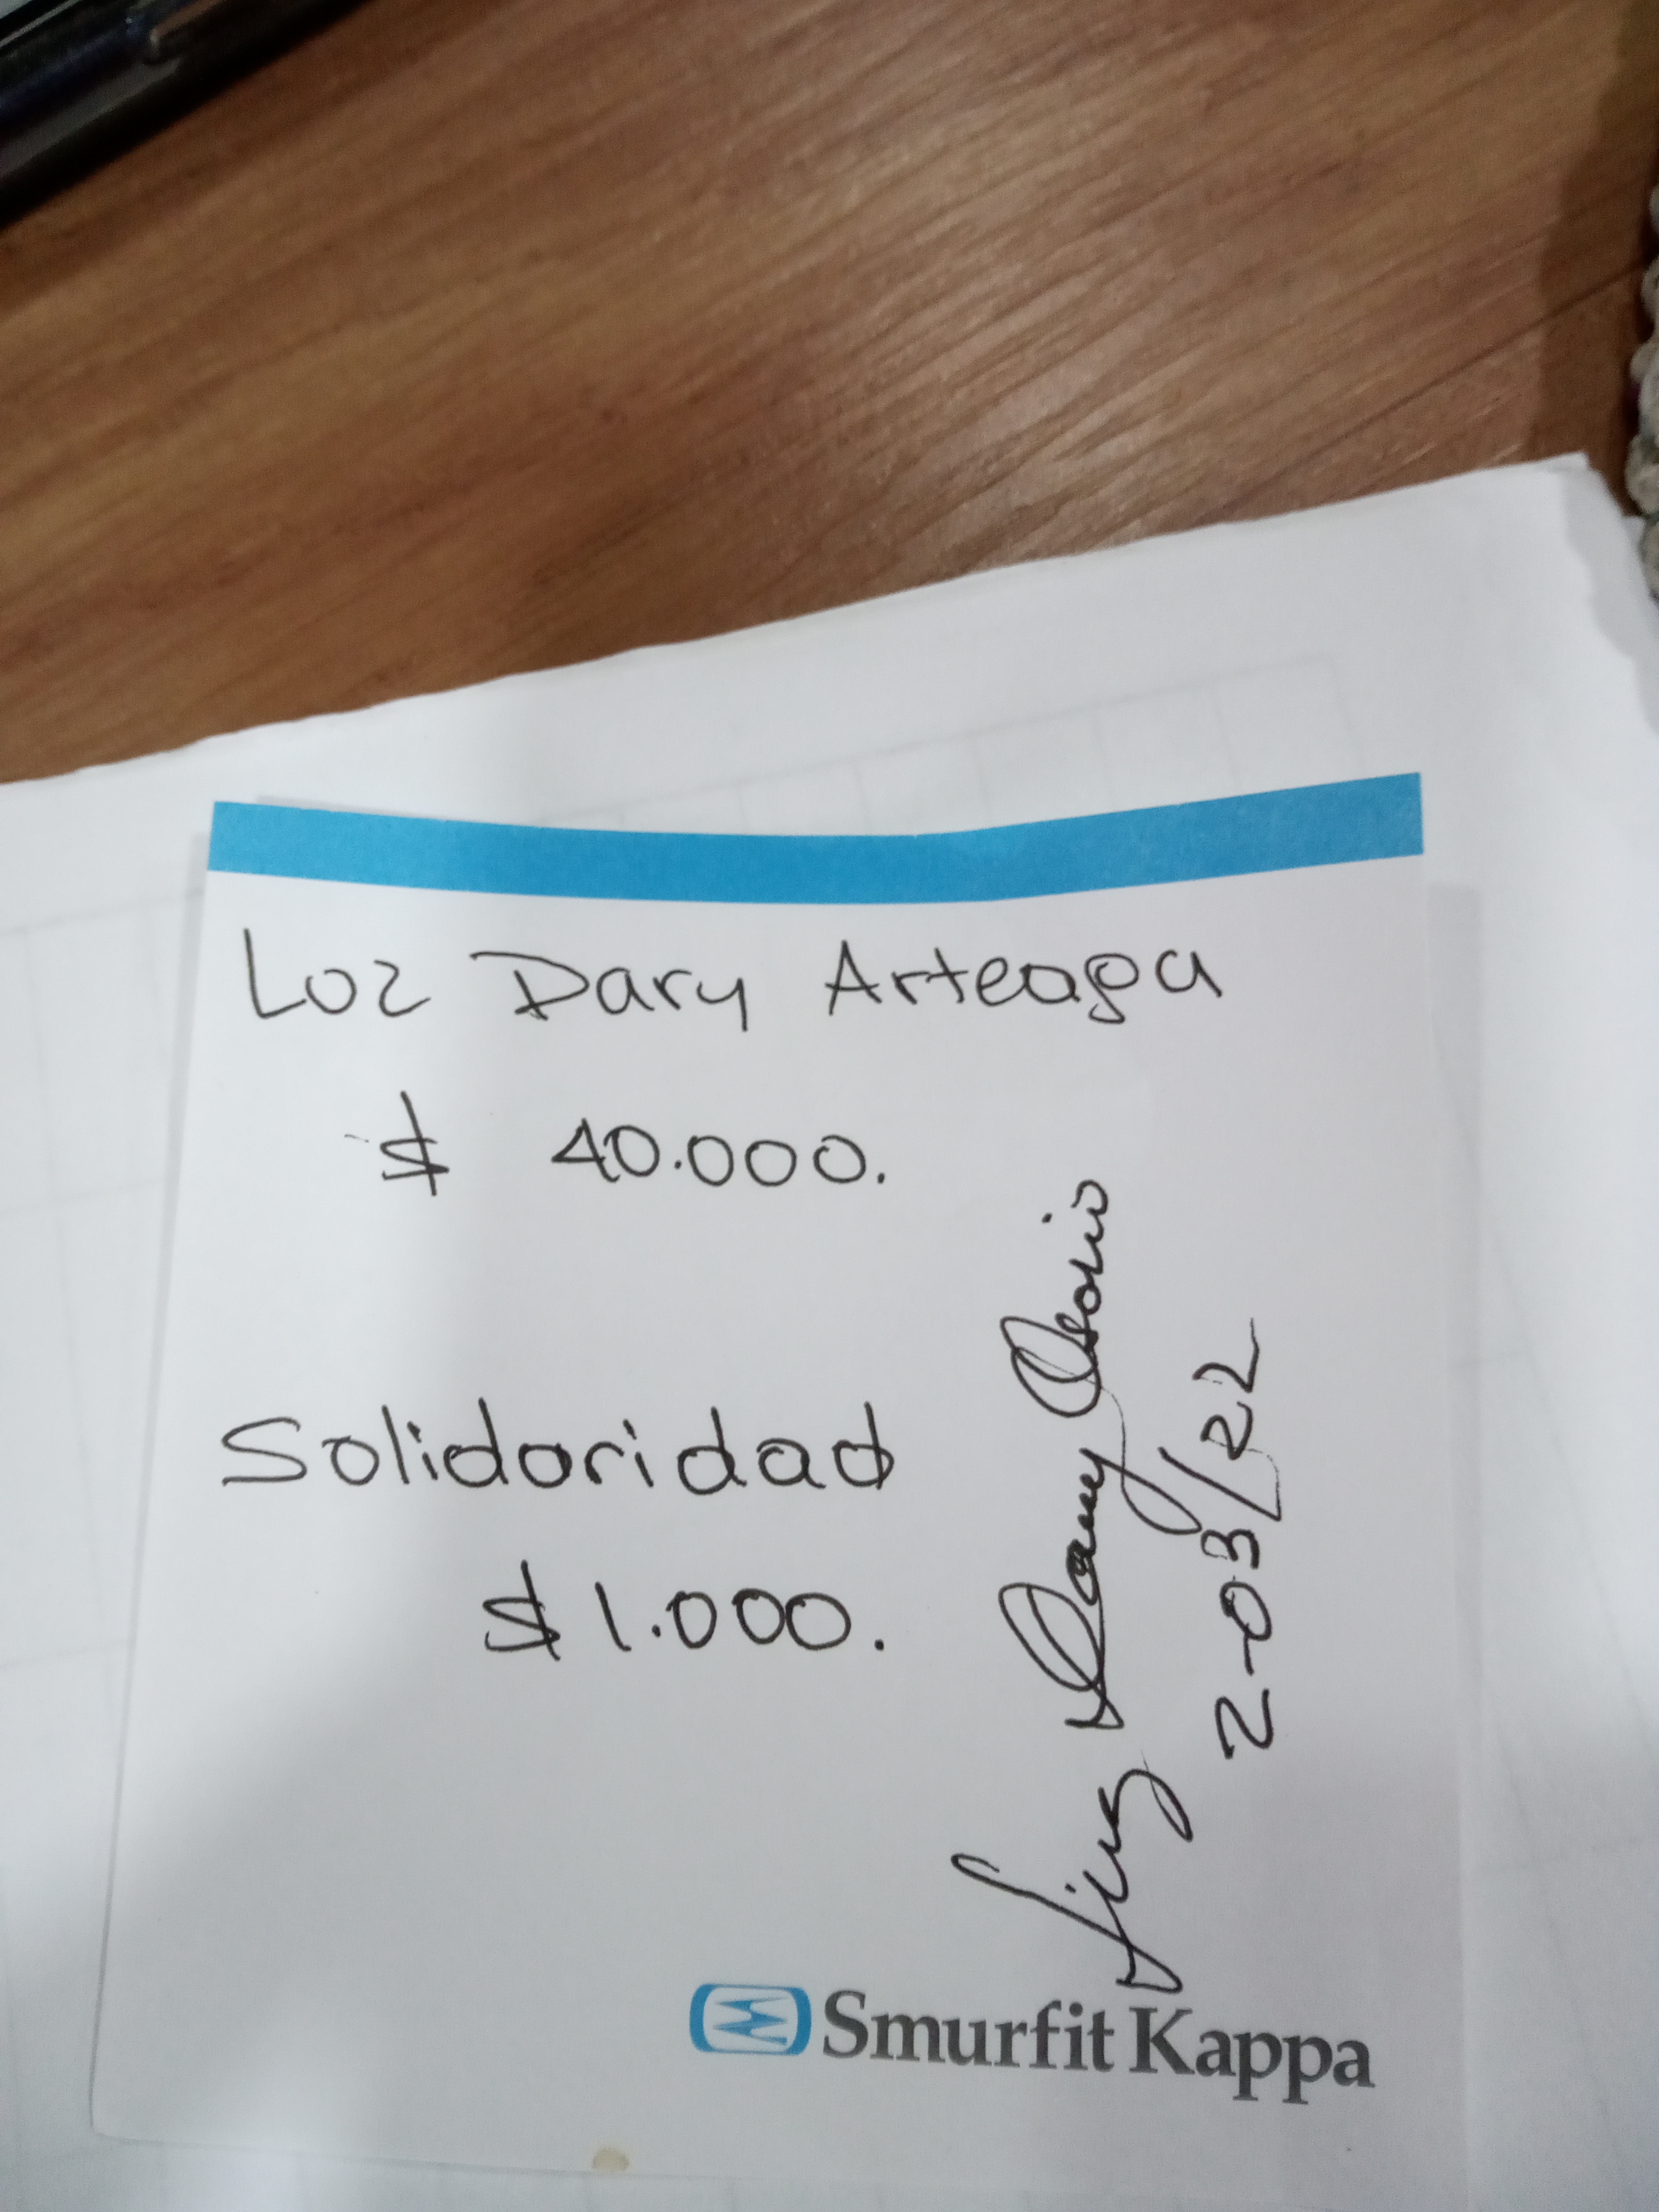 Luz Dary Arteaga
$ 40.000.
Solidaridad
$ 1.000.
Dany Osorio
2-03/22
Smurfit Kappa